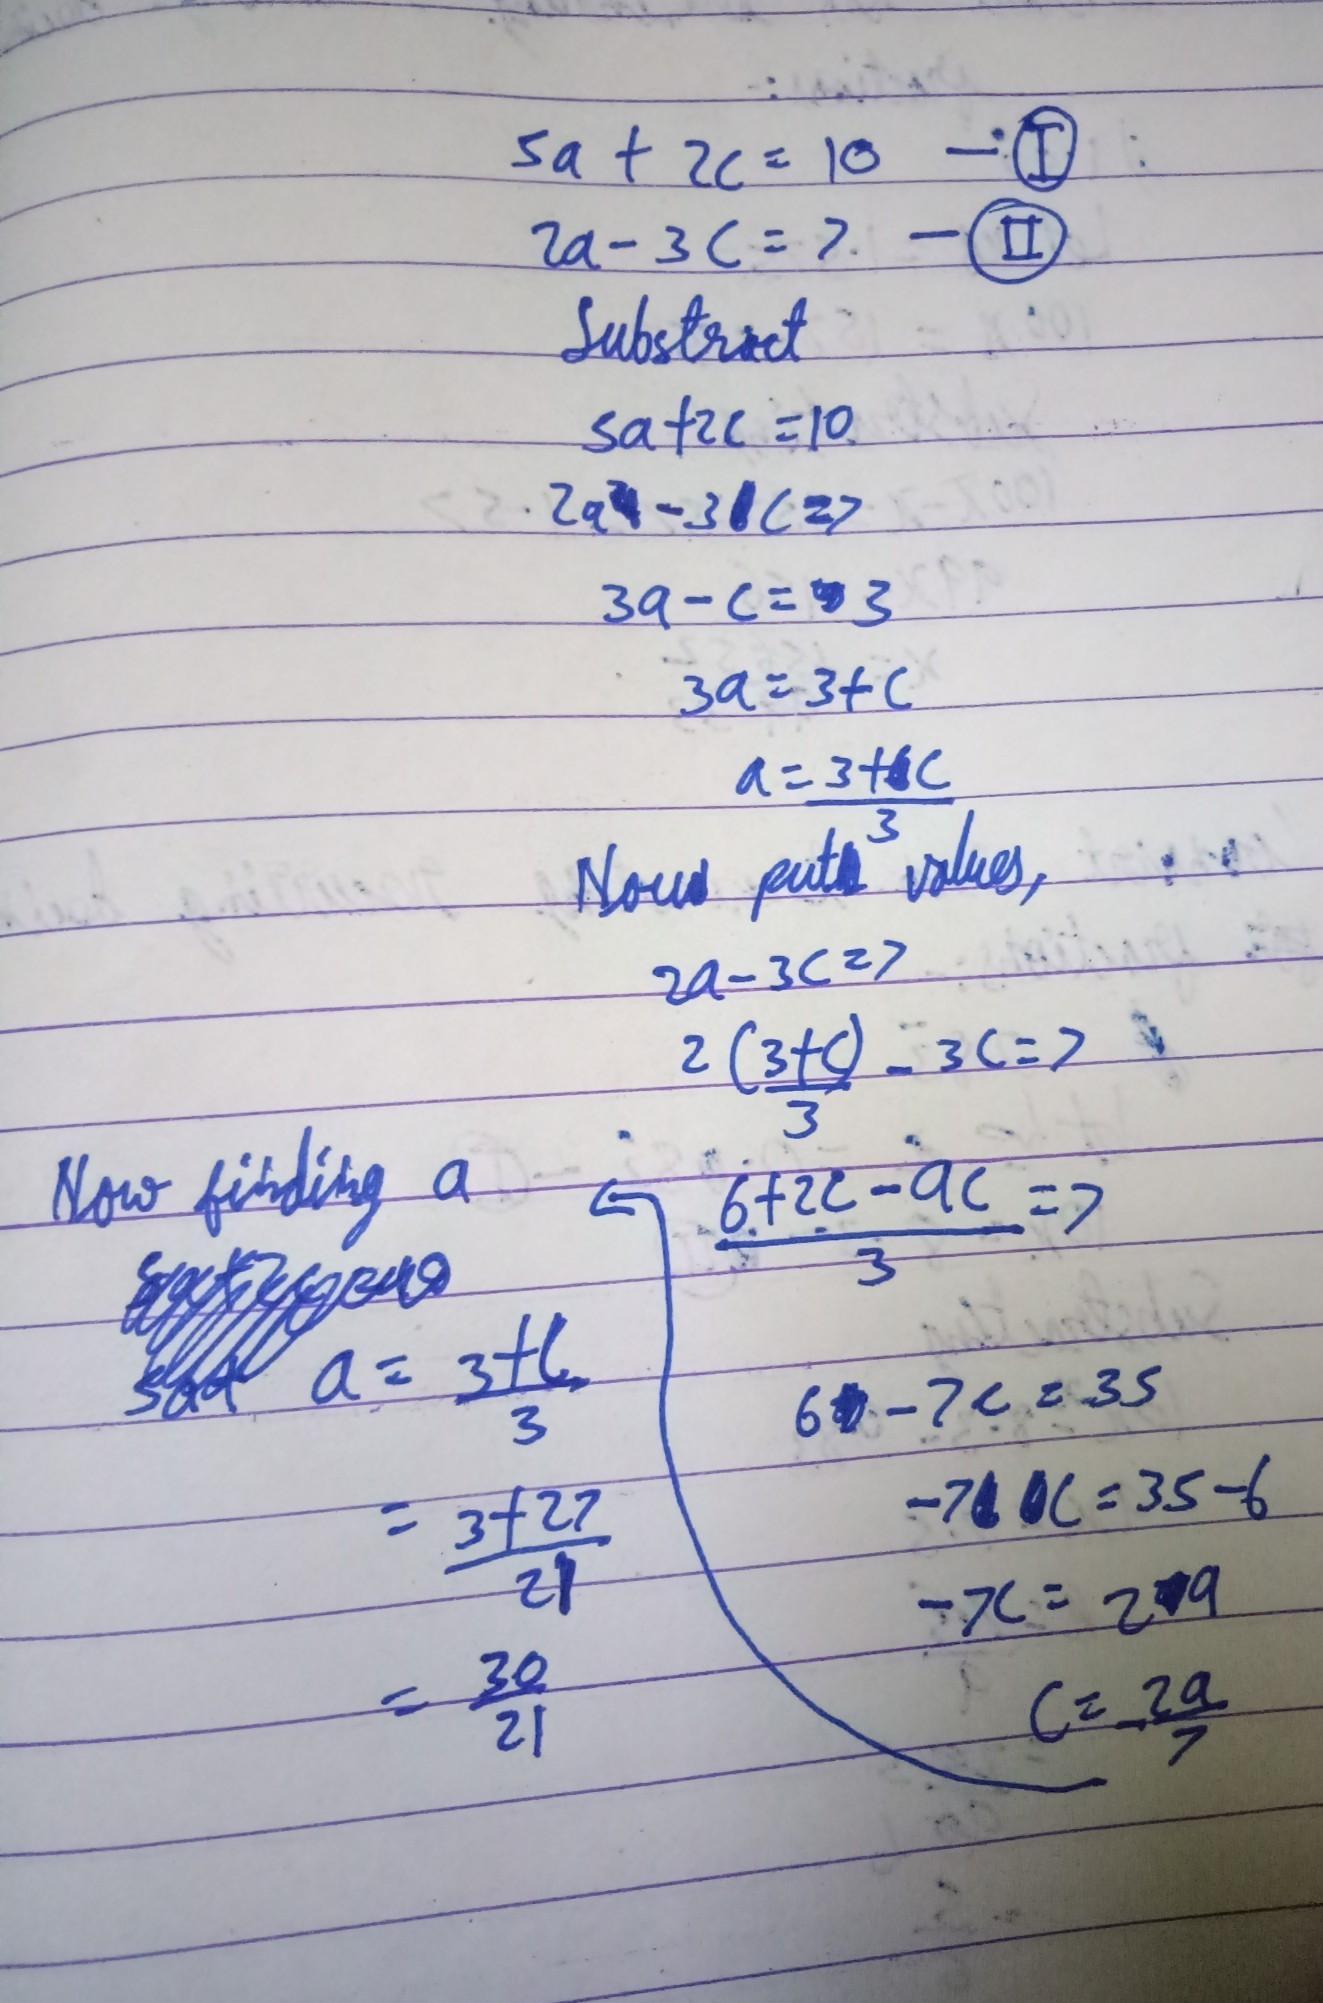 5a + 2c = 10 — I
2a - 3c = 7. — II
Substract
5a+2c = 10
2a - 3c = 7
3a - c = 3
3a = 3+c
a = 3+c
3
Now put values,
2a - 3c = 7
2 (3+c) - 3c = 7
3
6+2c - 9c = 7
3
6 - 7c = 35
-7c = 35-6
-7c = 29
c = -29
7
Now finding a
a = 3+c
3
= 3+27
21
= 30
21